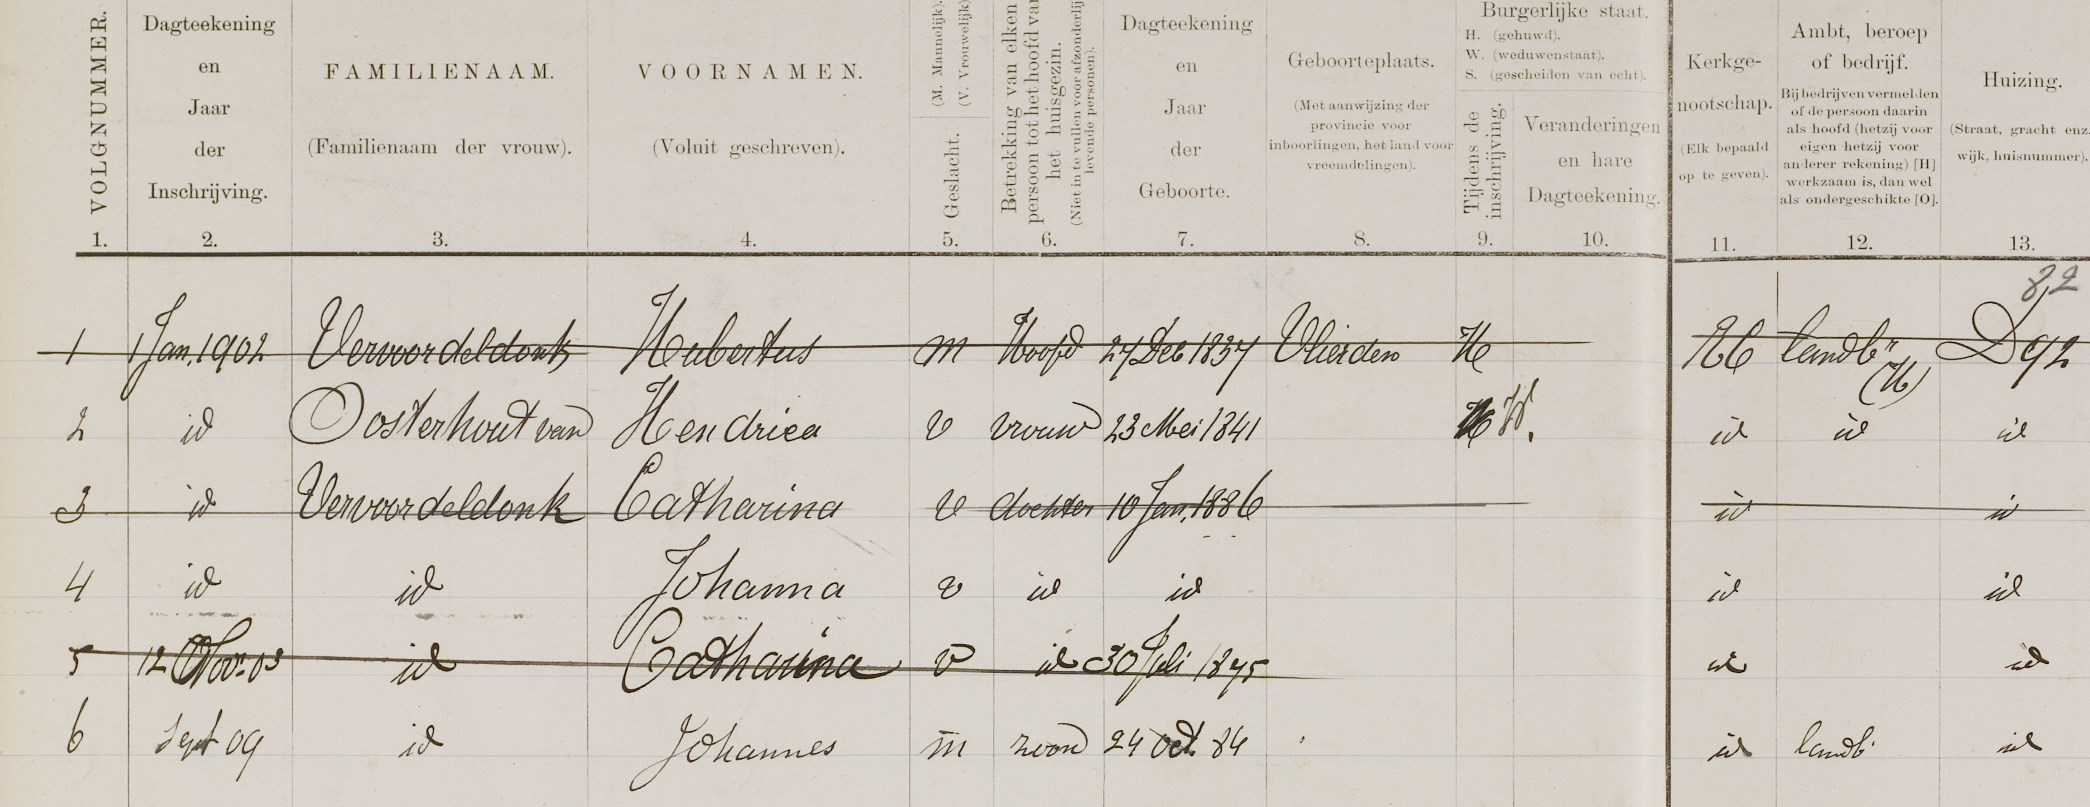 VOLGNUMMER.
Dagteekening
en
Jaar
der
Inschrijving.
FAMILIENAAM.
(Familienaam der vrouw).
VOORNAMEN.
(Voluit geschreven).
(M. Mannelijk).
(V. Vrouwelijk)
Geslacht.
Betrekking van elken
persoon tot het hoofd van
het huisgezin.
(Niet in te vullen voor afzonderlijk
levende personen).
Dagteekening
en
Jaar
der
Geboorte.
Geboorteplaats.
(Met aanwijzing der
provincie voor
inboorlingen, het land voor
vreemdelingen).
Burgerlijke staat.
H. (gehuwd).
W. (weduwenstaat).
S. (gescheiden van echt).
Tijdens de
inschrijving.
Veranderingen
en hare
Dagteekening.
Kerkge-
nootschap.
(Elk bepaald
op te geven).
Ambt, beroep
of bedrijf.
Bij bedrijven vermelden
of de persoon daarin
als hoofd (hetzij voor
eigen hetzij voor
anderer rekening) [H]
werkzaam is, dan wel
als ondergeschikte [O].
Huizing.
(Straat, gracht enz.
wijk, huisnummer).
1. 2. 3. 4. 5. 6. 7. 8. 9. 10. 11. 12. 13.
82
1 1 Jan. 1902 Vervoordeldonk Hubertus m Hoofd 27 Deb 1837 Vlierden H RC landbr (H) D 92
2 id Oosterhout van Hendrica v vrouw 23 Mei 1841 H W. id id id
3 id Vervoordeldonk Catharina v dochter 10 Jan. 1886 id id
4 id id Johanna v id id id id
5 12 Nov. 03 id Catharina v id 30 Juli 1875 id id
6 Sept 09 id Johannes m zoon 24 Oct. 84 id landb. id